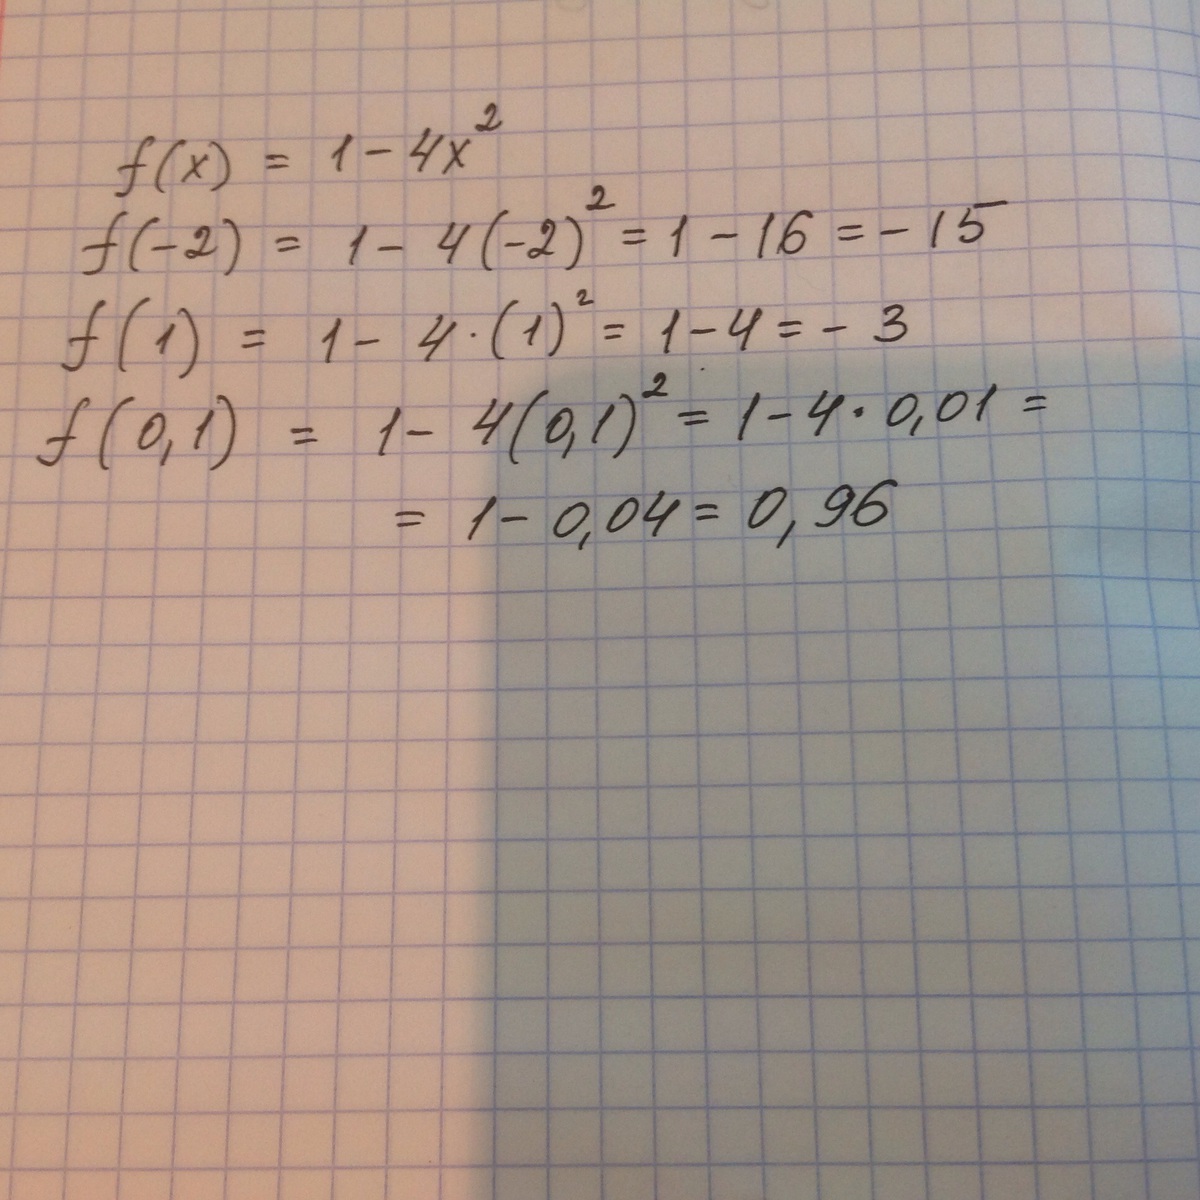 f(x) = 1 - 4x²
f(-2) = 1 - 4(-2)² = 1 - 16 = - 15
f(1) = 1 - 4·(1)² = 1 - 4 = - 3
f(0,1) = 1 - 4(0,1)² = 1 - 4·0,01 =
= 1 - 0,04 = 0,96